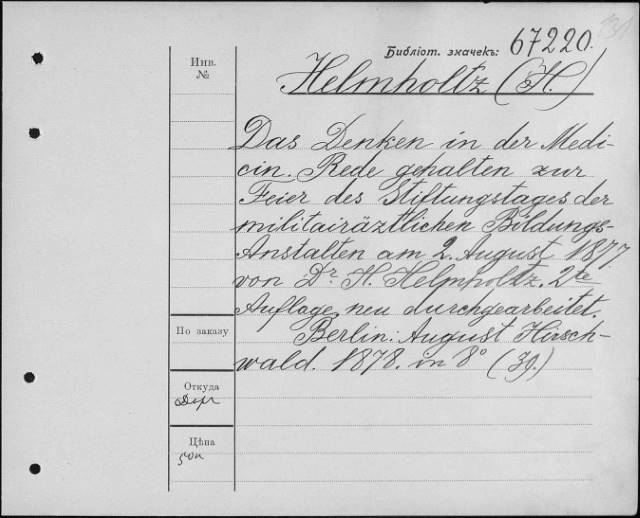 Библіот. значекъ: 67220.
Инв. №
Helmholtz (H.)
Das Denken in der Medi-
cin. Rede gehalten zur
Feier des Stiftungstages der
militairäztlichen Bildungs-
Anstalten am 2. August 1877.
von Dr. H. Helmholtz. 2te
Auflage neu durchgearbeitet.
Berlin: August Hirsch-
wald. 1878. in 8°
По заказу
Откуда
Цѣна